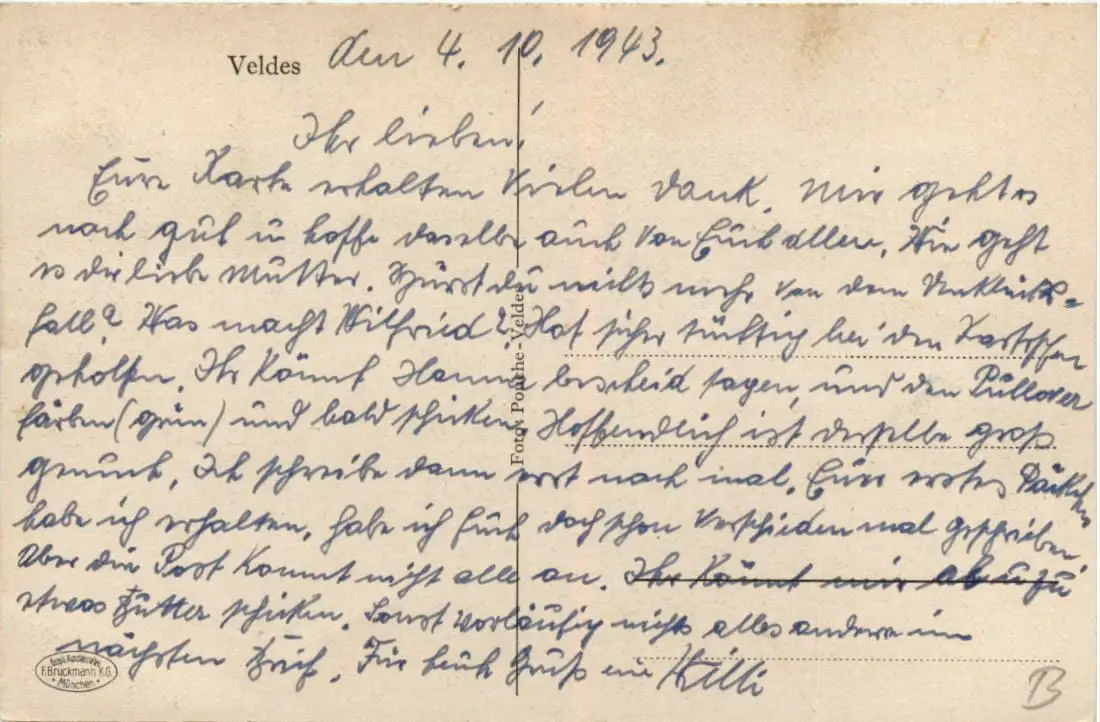 Veldes den 4. 10. 1943.
Ihr lieben!
Eure Karte erhalten Vielen Dank. Mir geht es
noch gut u hoffe dasselbe auch von Euch allen. Wie geht
es dir liebe Mutter. Hörst du nichts mehr von dem
fall? Was macht Wilfried? Hat sicher tüchtig bei den
geholfen. Ihr könnt Hanni bescheid sagen, und den Pullover
färben (grün) und bald schicken Hoffendlich ist derselbe groß
genuch. Ich schreibe dann erst noch mal. Eure erstes Päckchen
habe ich erhalten, habe ich Euch doch schon Verschieden mal geschrieben
Aber die Post kommt nicht alle an. Ihr könnt mir ab u zu
etwas Butter schicken. Sonst vorläufig nichts alles andere im
nächsten Brief. Für heute Gruß eur Willi
Foto: Pouche-Veldes
F. Bruckmann K.G.
München
B